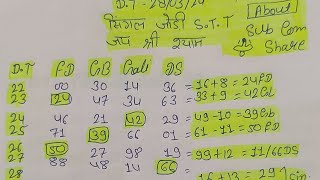 D.T - 28/03/24
About
सिंगल जोडी S.T.T
Sub Com
जय श्री श्याम
Share
D.T FD GB Gali DS
22 00 30 14 36 = 16+8 = 24 FD
23 24 47 34 63 = 33+9 = 42 GL
24 46 21 42 29 = 49-10 = 39 Gb
25 71 39 66 01 = 61-11 = 50 FD
26 50 27 98 19 = 99+12 = 11/66 DS
27 88 48 14 66
28 = 16+13 = 29